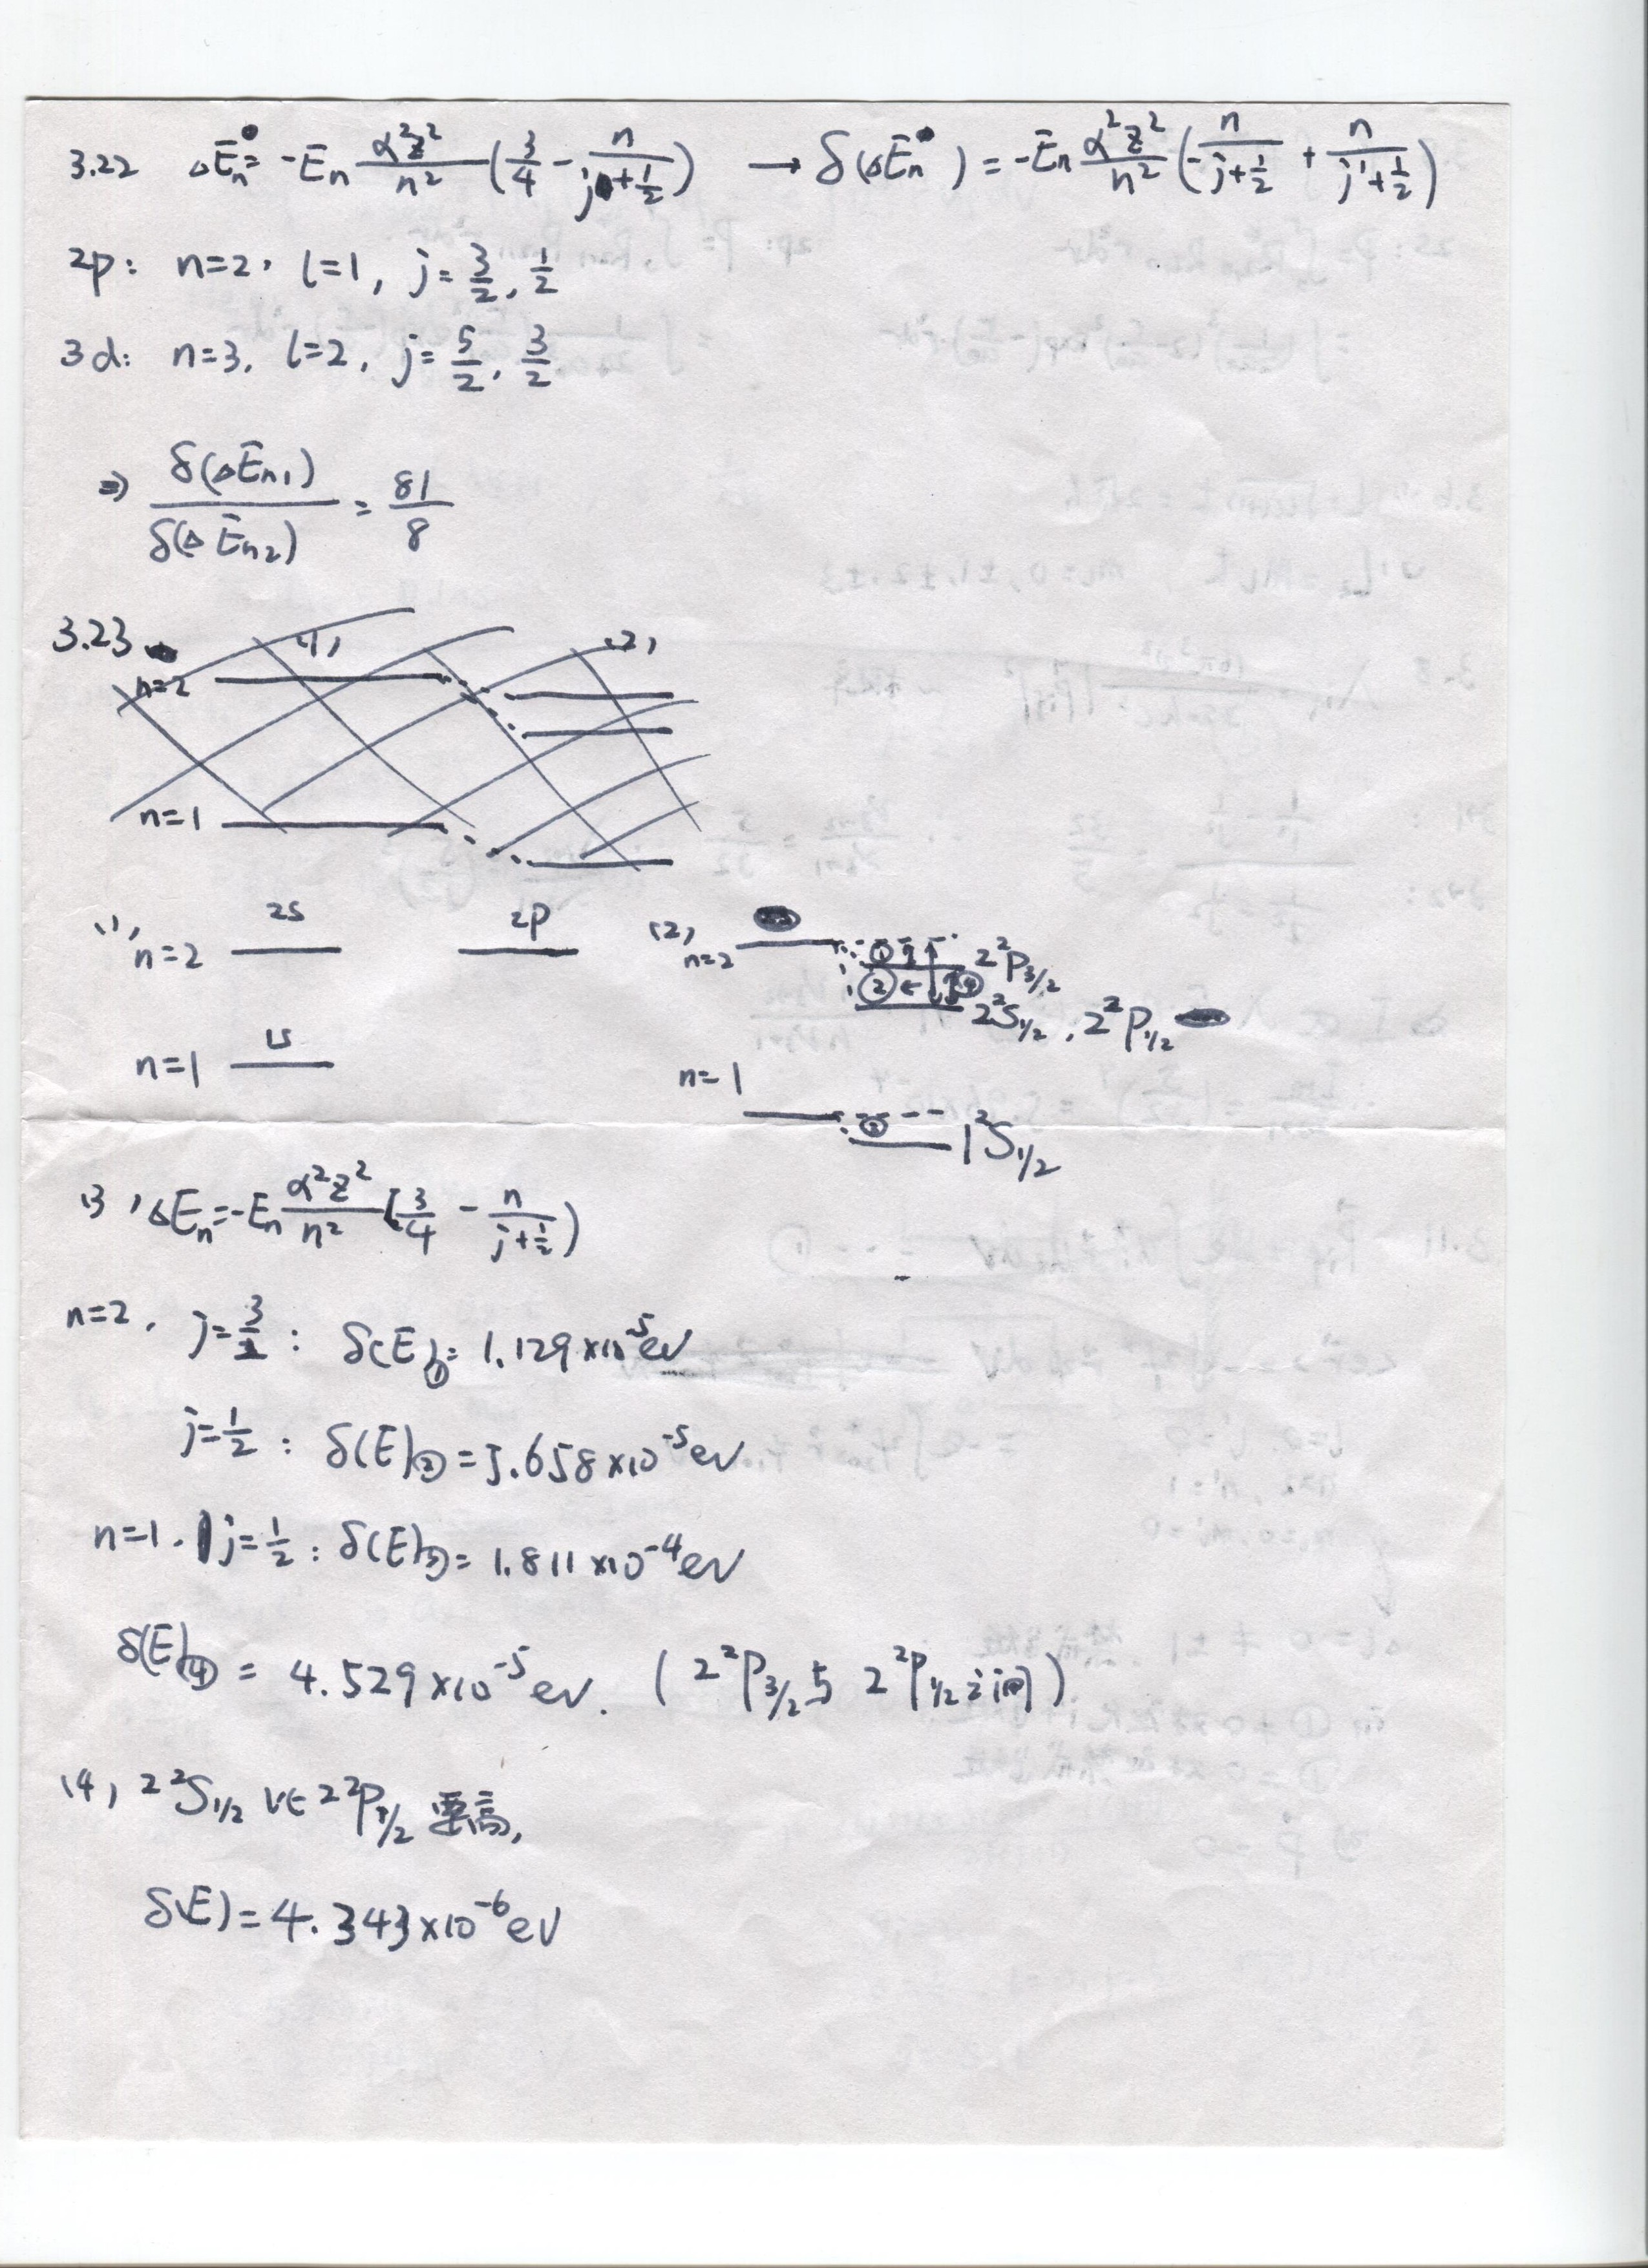 3.22 ΔEn = -En α²z²/n² (3/4 - n/(j+1/2)) → δ(ΔEn) = -En α²z²/n² (-n/(j+1/2) + n/(j'+1/2))
2p: n=2, l=1, j=3/2, 1/2
3d: n=3, l=2, j=5/2, 3/2
⇒ δ(ΔEn1)/δ(ΔEn2) = 81/8
3.23
(1) (2)
n=2
n=1
(1) 2s 2p
n=2
1s
n=1
(2)
n=2 ① 2²P3/2
② ④
2²S1/2, 2²P1/2
n=1
③ 1²S1/2
(3) ΔEn = -En α²z²/n² (3/4 - n/(j+1/2))
n=2, j=3/2: δ(E)① = 1.129×10⁻⁵ev
j=1/2: δ(E)② = 5.658×10⁻⁵ev
n=1, j=1/2: δ(E)③ = 1.811×10⁻⁴ev
δ(E)④ = 4.529×10⁻⁵ev. (2²P3/2与2²P1/2之间)
(4) 2²S1/2 比 2²P1/2 要高,
δ(E) = 4.343×10⁻⁶ev